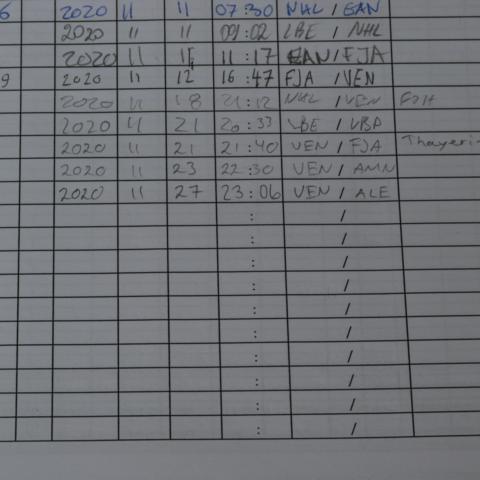 6 2020 11 11 07:30 NHL / EAN
2020 11 11 09:02 LBE / NHL
2020 11 11 11:17 EAN / FJA
9 2020 11 12 16:47 FJA / VEN
2020 11 18 21:12 NHL / VEN
2020 11 21 20:33 LBE / VBA
2020 11 21 21:40 VEN / FJA Thayeri
2020 11 23 22:30 VEN / AMN
2020 11 27 23:06 VEN / ALE
: /
: /
: /
: /
: /
: /
: /
: /
: /
: /